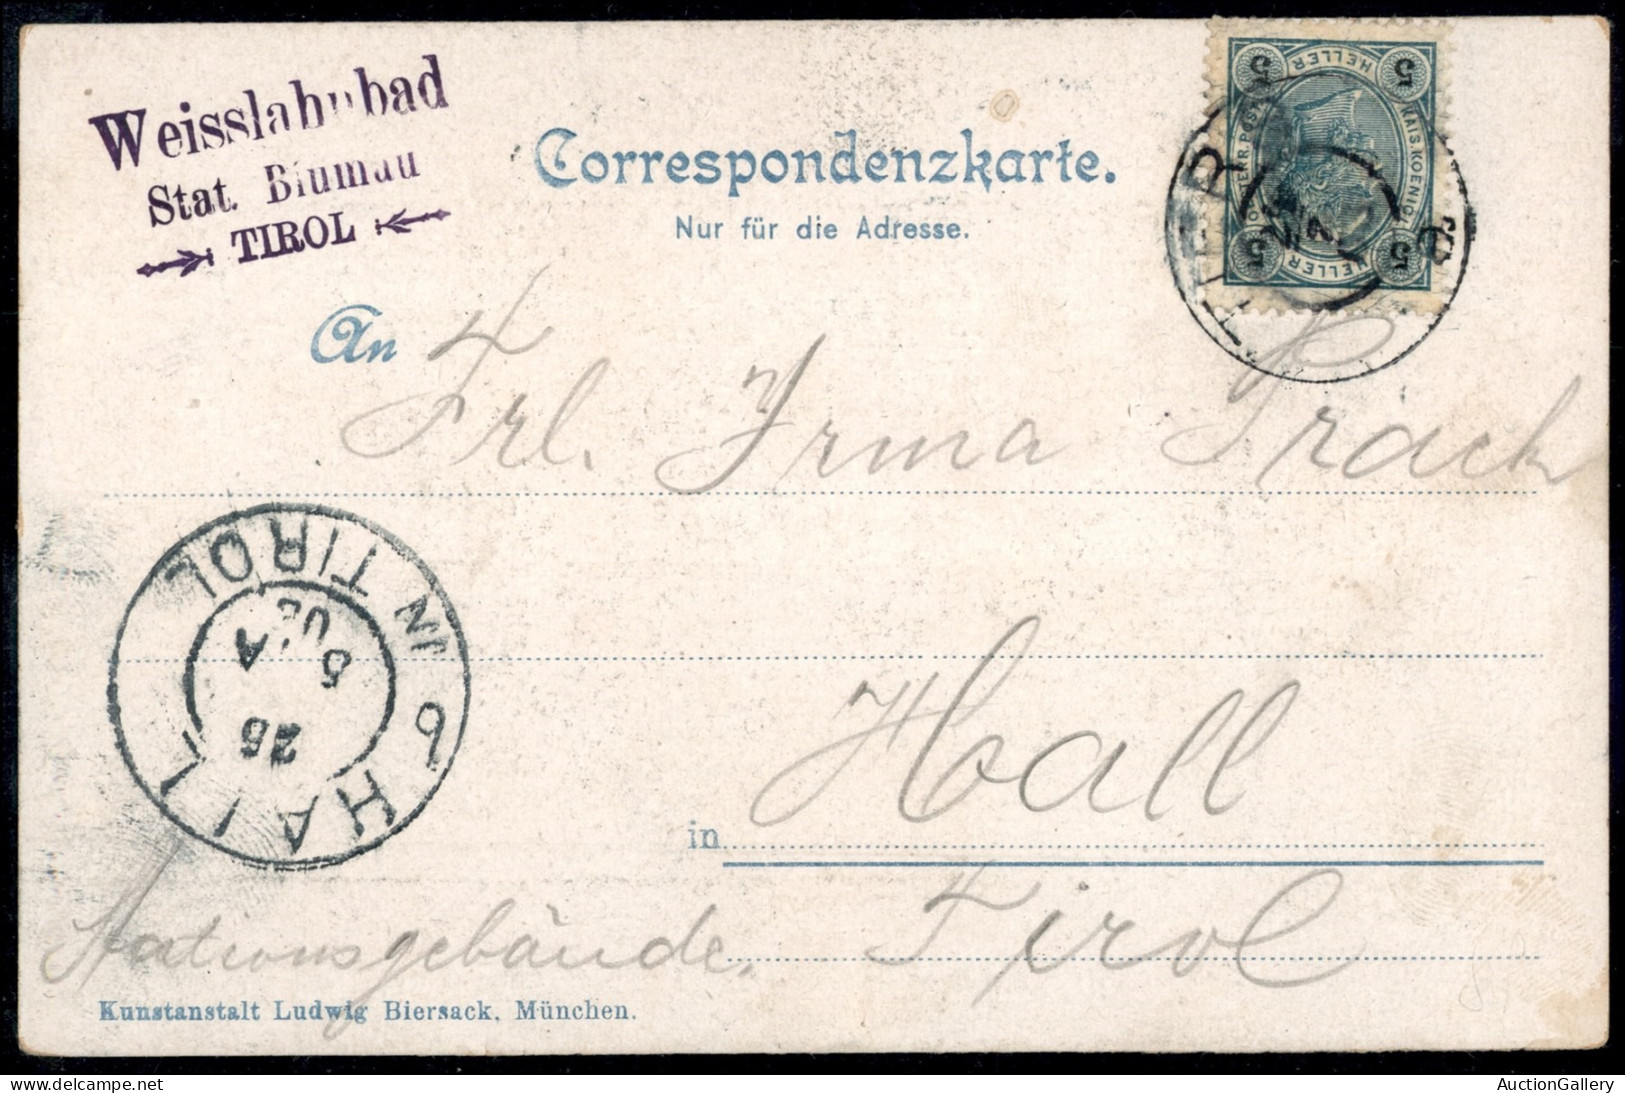 Weisslahnbad
Stat. Blumau
TIROL
Correspondenzkarte.
Nur für die Adresse.
HELLER
5 5
KAIS. KOENIGL.
5 5
HELLER
TIER
An Frl. Irma Prack
HALL IN TIROL
25
5 A
02
in Hall
Tirol
Stationsgebäude.
Kunstanstalt Ludwig Biersack, München.
AuctionGallery